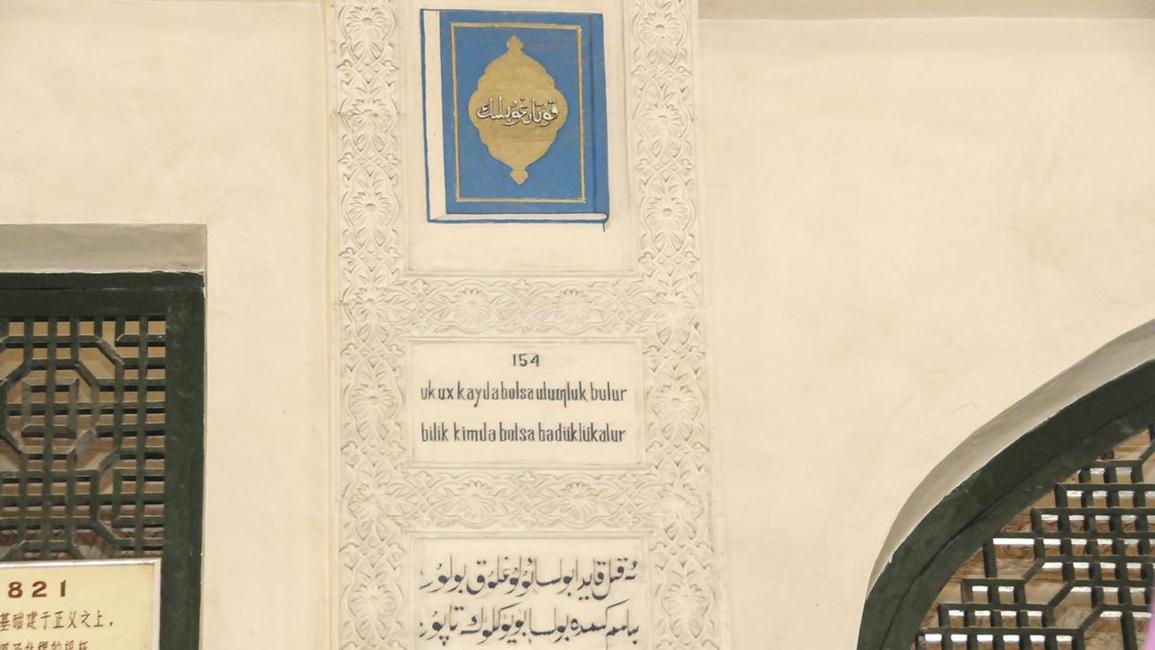 قۇتادغۇبىلىك
154
ukux kayda bolsa uluƣluk bulur
bilik kimda bolsa badüklükalur
ئۇقۇش قايدا بولسا ئۇلۇغلۇق بولۇر
بىلىم كىمدە بولسا بۈيۈكلۈك تاپۇر
821
基础建于正义之上，